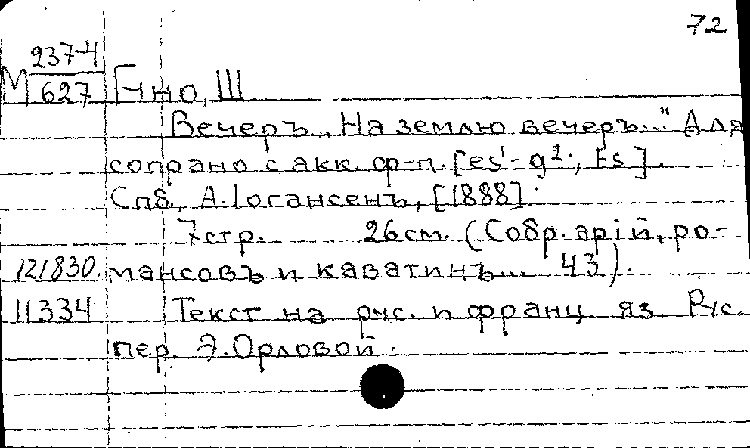 72
М 237-4
627 Гуно, Ш
Вечеръ. „На землю вечеръ..." Для
сопрано с акк. ф-п. [es¹-g²; Es].
Спб, А. Іогансенъ, [1888].
7 стр. 26 см. (Собр. арій, ро-
121830. мансовъ и каватинъ... 43).
11334 Текст на рус. и франц. яз. Рус.
пер. Э. Орловой.